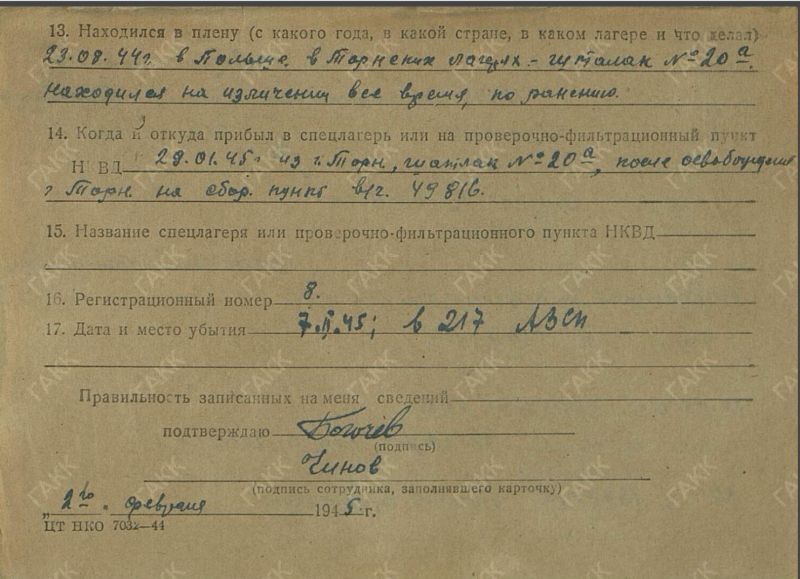 13. Находился в плену (с какого года, в какой стране, в каком лагере и что делал)
23.08.44г. в Польше в Торнских лагерях - шталак № 20а.
Находился на изличении все время, по ранению.
14. Когда и откуда прибыл в спецлагерь или на проверочно-фильтрационный пункт
НКВД 29.01.45г из г. Торн, шатлак № 20а, после освобождения
г Торн. на сбор. пункт в/ч. 49816.
15. Название спецлагеря или проверочно-фильтрационного пункта НКВД
16. Регистрационный номер 8.
17. Дата и место убытия 7.II.45; в 217 АЗСП
Правильность записанных на меня сведений
подтверждаю
(подпись)
Чинов
(подпись сотрудника, заполнявшего карточку)
„2го" февраля 1945 г.
ЦТ НКО 7032—44
ГАКК